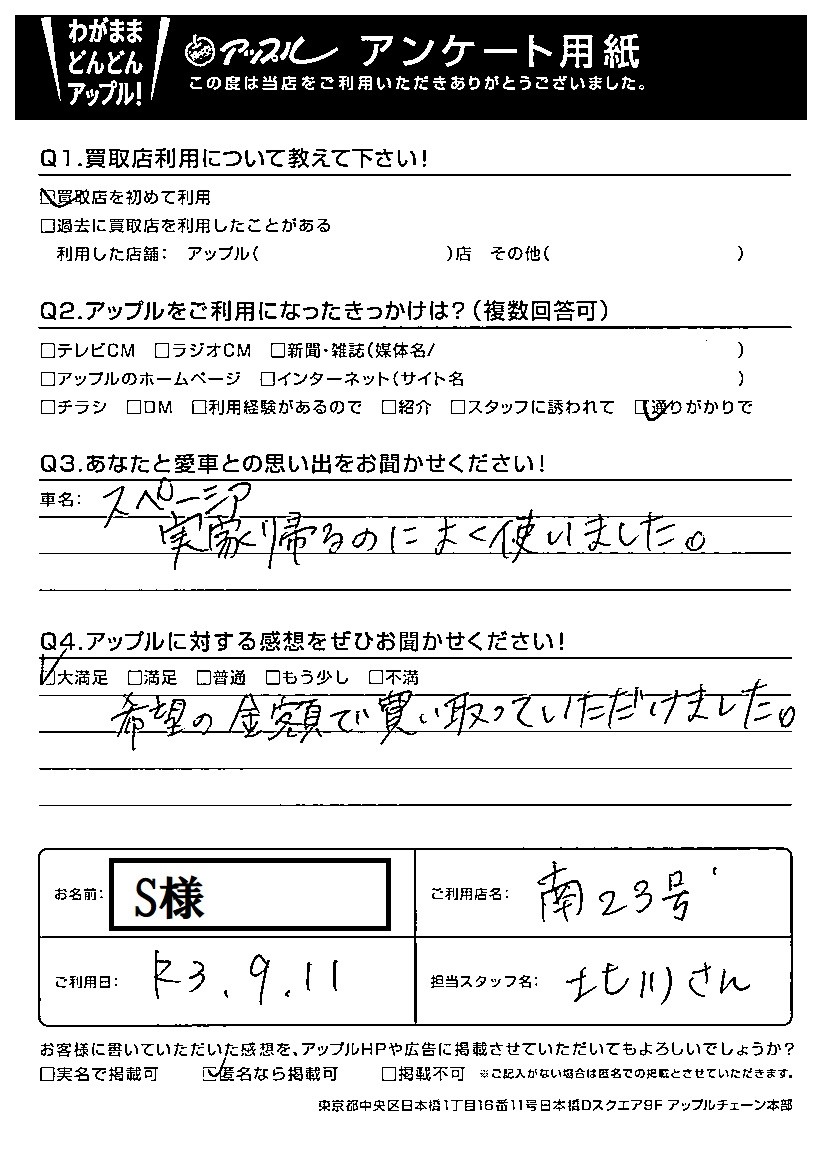 わがまま
どんどん
アップル!
アップル アンケート用紙
この度は当店をご利用いただきありがとうございました。
Q1.買取店利用について教えて下さい!
☑買取店を初めて利用
□過去に買取店を利用したことがある
利用した店舗: アップル( )店 その他( )
Q2.アップルをご利用になったきっかけは?(複数回答可)
□テレビCM □ラジオCM □新聞・雑誌(媒体名/ )
□アップルのホームページ □インターネット(サイト名 )
□チラシ □DM □利用経験があるので □紹介 □スタッフに誘われて ☑通りがかりで
Q3.あなたと愛車との思い出をお聞かせください!
車名: スペーシア
実家帰るのによく使いました。
Q4.アップルに対する感想をぜひお聞かせください!
☑大満足 □満足 □普通 □もう少し □不満
希望の金額で買い取っていただけました。
お名前: S様
ご利用店名: 南23号
ご利用日: R3.9.11
担当スタッフ名: 北川さん
お客様に書いていただいた感想を、アップルHPや広告に掲載させていただいてもよろしいでしょうか?
□実名で掲載可 ☑匿名なら掲載可 □掲載不可 ※ご記入がない場合は匿名での掲載とさせていただきます。
東京都中央区日本橋1丁目16番11号日本橋Dスクエア9F アップルチェーン本部